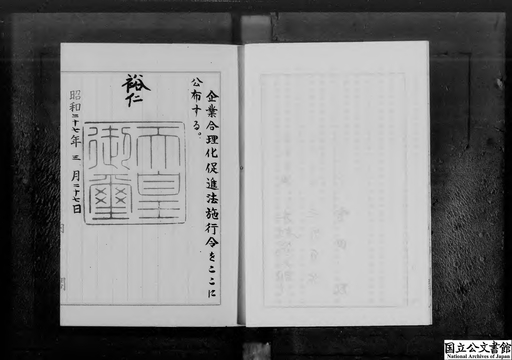 企業合理化促進法施行令をここに
公布する。
裕仁
天皇
御璽
昭和二十七年三月二十七日
国立公文書館
National Archives of Japan